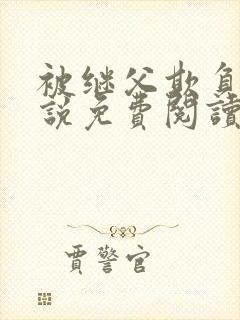 被继父欺负
說免費閱讀
賈警官